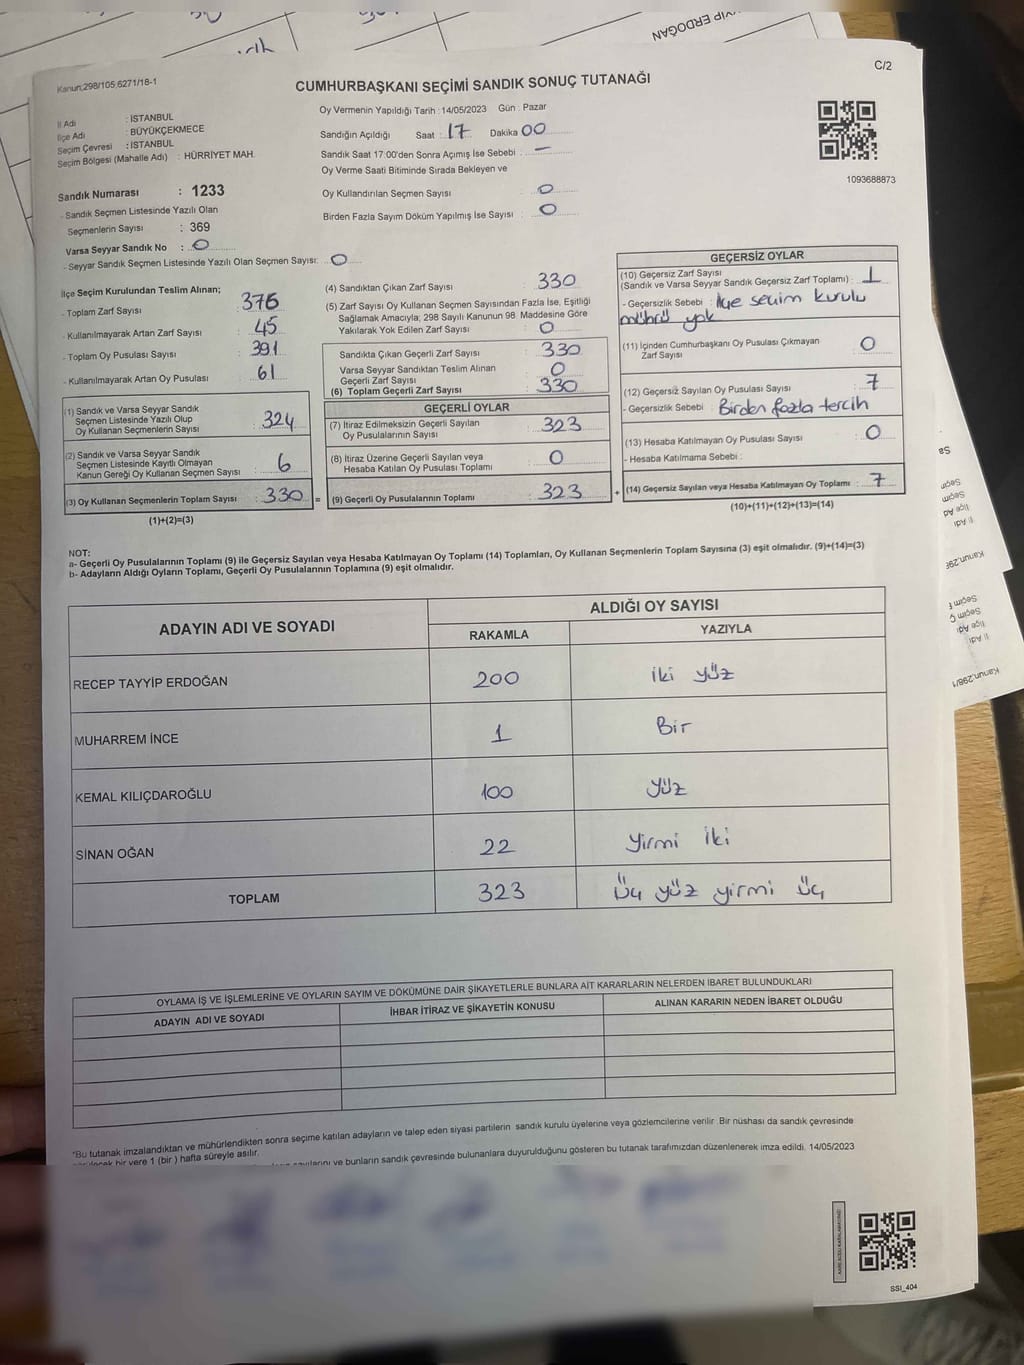 YİP ERDOĞAN
Kanun;298/105 6271/18-1
CUMHURBAŞKANI SEÇİMİ SANDIK SONUÇ TUTANAĞI
C/2
İl Adı : İSTANBUL
İlçe Adı : BÜYÜKÇEKMECE
Seçim Çevresi : İSTANBUL
Seçim Bölgesi (Mahalle Adı) : HÜRRİYET MAH.
Sandık Numarası : 1233
- Sandık Seçmen Listesinde Yazılı Olan
Seçmenlerin Sayısı : 369
Varsa Seyyar Sandık No : 0
- Seyyar Sandık Seçmen Listesinde Yazılı Olan Seçmen Sayısı: 0
Oy Vermenin Yapıldığı Tarih : 14/05/2023 Gün : Pazar
Sandığın Açıldığı Saat : 17 Dakika 00
Sandık Saat 17:00'den Sonra Açımış İse Sebebi : —
Oy Verme Saati Bitiminde Sırada Bekleyen ve
Oy Kullandırılan Seçmen Sayısı : 0
Birden Fazla Sayım Döküm Yapılmış İse Sayısı : 0
1093688873
İlçe Seçim Kurulundan Teslim Alınan;
- Toplam Zarf Sayısı : 376
- Kullanılmayarak Artan Zarf Sayısı : 45
- Toplam Oy Pusulası Sayısı : 391
- Kullanılmayarak Artan Oy Pusulası : 61
(1) Sandık ve Varsa Seyyar Sandık
Seçmen Listesinde Yazılı Olup
Oy Kullanan Seçmenlerin Sayısı : 324
(2) Sandık ve Varsa Seyyar Sandık
Seçmen Listesinde Kayıtlı Olmayan
Kanun Gereği Oy Kullanan Seçmen Sayısı : 6
(3) Oy Kullanan Seçmenlerin Toplam Sayısı : 330 =
(1)+(2)=(3)
(4) Sandıktan Çıkan Zarf Sayısı : 330
(5) Zarf Sayısı Oy Kullanan Seçmen Sayısından Fazla İse, Eşitliği
Sağlamak Amacıyla; 298 Sayılı Kanunun 98. Maddesine Göre
Yakılarak Yok Edilen Zarf Sayısı : 0
Sandıkta Çıkan Geçerli Zarf Sayısı : 330
Varsa Seyyar Sandıktan Teslim Alınan
Geçerli Zarf Sayısı : 0
(6) Toplam Geçerli Zarf Sayısı : 330
GEÇERLİ OYLAR
(7) İtiraz Edilmeksizin Geçerli Sayılan
Oy Pusulalarının Sayısı : 323
(8) İtiraz Üzerine Geçerli Sayılan veya
Hesaba Katılan Oy Pusulası Toplamı : 0
(9) Geçerli Oy Pusulalarının Toplamı : 323 +
GEÇERSİZ OYLAR
(10) Geçersiz Zarf Sayısı
(Sandık ve Varsa Seyyar Sandık Geçersiz Zarf Toplamı) : 1
- Geçersizlik Sebebi : İlçe seçim kurulu
mührü yok
(11) İçinden Cumhurbaşkanı Oy Pusulası Çıkmayan
Zarf Sayısı : 0
(12) Geçersiz Sayılan Oy Pusulası Sayısı : 7
- Geçersizlik Sebebi : Birden fazla tercih
(13) Hesaba Katılmayan Oy Pusulası Sayısı : 0
- Hesaba Katılmama Sebebi :
(14) Geçersiz Sayılan veya Hesaba Katılmayan Oy Toplamı : 7
(10)+(11)+(12)+(13)=(14)
NOT:
a- Geçerli Oy Pusulalarının Toplamı (9) ile Geçersiz Sayılan veya Hesaba Katılmayan Oy Toplamı (14) Toplamları, Oy Kullanan Seçmenlerin Toplam Sayısına (3) eşit olmalıdır. (9)+(14)=(3)
b- Adayların Aldığı Oyların Toplamı, Geçerli Oy Pusulalarının Toplamına (9) eşit olmalıdır.
ADAYIN ADI VE SOYADI
ALDIĞI OY SAYISI
RAKAMLA YAZIYLA
RECEP TAYYİP ERDOĞAN 200 İki yüz
MUHARREM İNCE 1 Bir
KEMAL KILIÇDAROĞLU 100 Yüz
SİNAN OĞAN 22 Yirmi İki
TOPLAM 323 Üç yüz yirmi üç
OYLAMA İŞ VE İŞLEMLERİNE VE OYLARIN SAYIM VE DÖKÜMÜNE DAİR ŞİKAYETLERLE BUNLARA AİT KARARLARIN NELERDEN İBARET BULUNDUKLARI
ADAYIN ADI VE SOYADI İHBAR İTİRAZ VE ŞİKAYETİN KONUSU ALINAN KARARIN NEDEN İBARET OLDUĞU
*Bu tutanak imzalandıktan ve mühürlendikten sonra seçime katılan adayların ve talep eden siyasi partilerin sandık kurulu üyelerine veya gözlemcilerine verilir. Bir nüshası da sandık çevresinde
bir yere 1 (bir) hafta süreyle asılır.
ve bunların sandık çevresinde bulunanlara duyurulduğunu gösteren bu tutanak tarafımızdan düzenlenerek imza edildi. 14/05/2023
SSI_404
Seçim
İlçe Ad
İl Adı
Kanun;298
Seçim Ç
İlçe Adı
İl Adı
Kanun;298/1